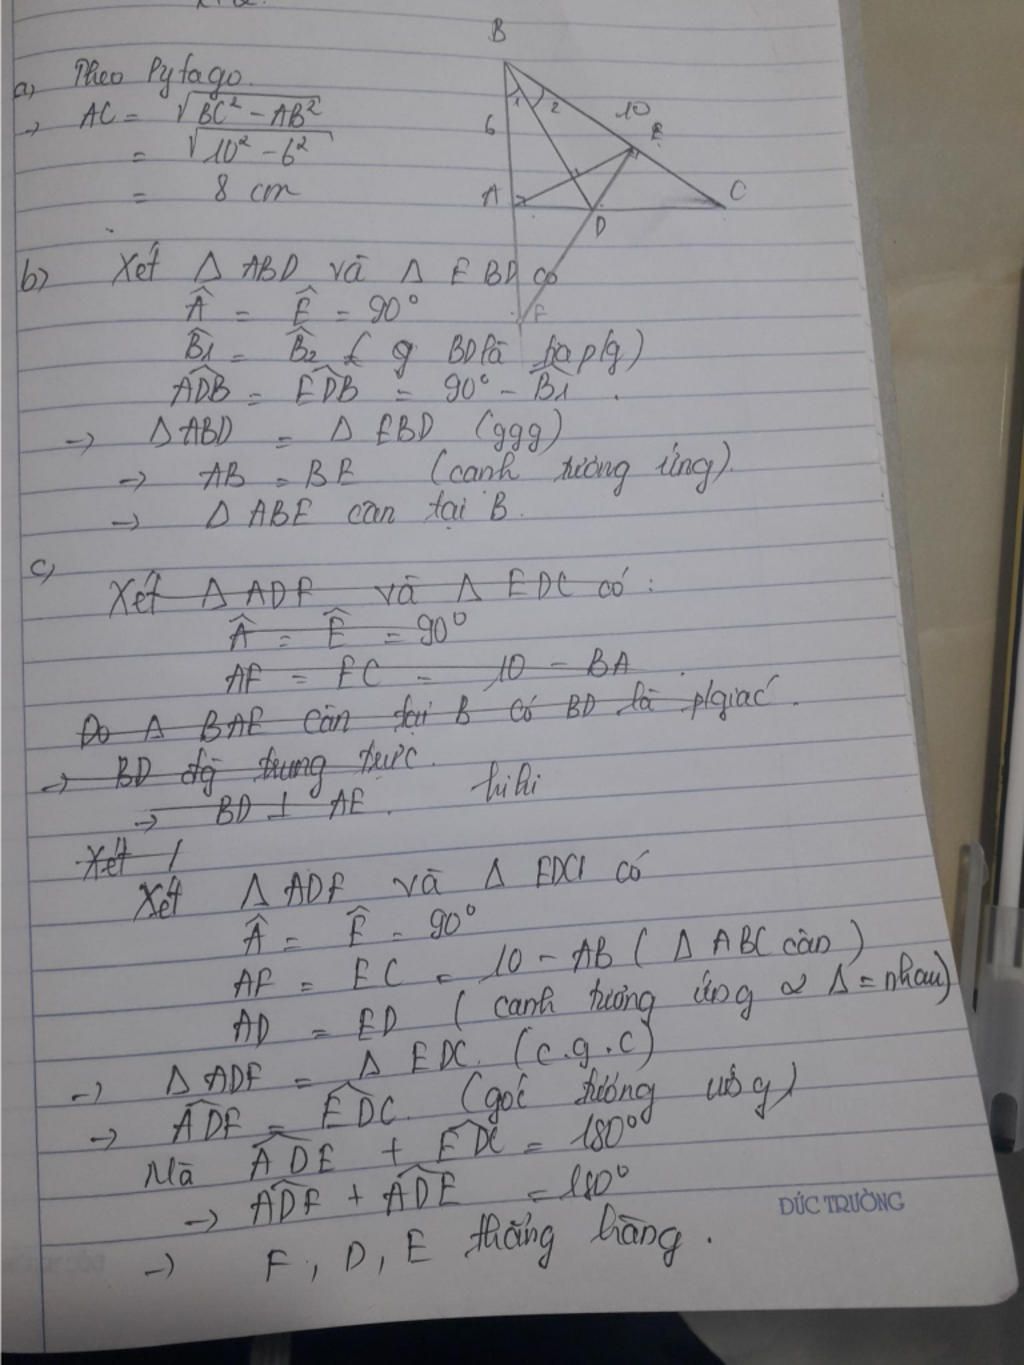 a) Theo Pytago.
→ AC = √BC² - AB²
= √10² - 6²
= 8 cm
B
1 2
6
10
E
A
D
C
F
b) Xét Δ ABD và Δ EBD có
Â = Ê = 90°
B̂1 = B̂2 ( g BD là tia p/g)
ADB = EDB = 90° - B̂1 .
→ Δ ABD = Δ EBD (ggg)
→ AB = BE (canh tương ứng).
→ Δ ABE cân tại B.
c)
Xét Δ ADF và Δ EDC có :
Â = Ê = 90°
AF = EC = 10 - BA
Do Δ BAE cân tại B có BD là p/giác .
→ BD đg trung trực.
→ BD ⊥ AE . hihi
Xét 1
Xét Δ ADF và Δ EDC có
Â = Ê = 90°
AF = EC = 10 - AB ( Δ ABC cân )
AD = ED ( canh tương ứng 2 Δ = nhau)
→ Δ ADF = Δ EDC. (c.g.c)
→ ADF = EDC. (góc tương ứng)
Mà ADE + EDC = 180°
→ ADF + ADE = 180°
→ F, D, E thẳng hàng .
ĐỨC TRƯỜNG